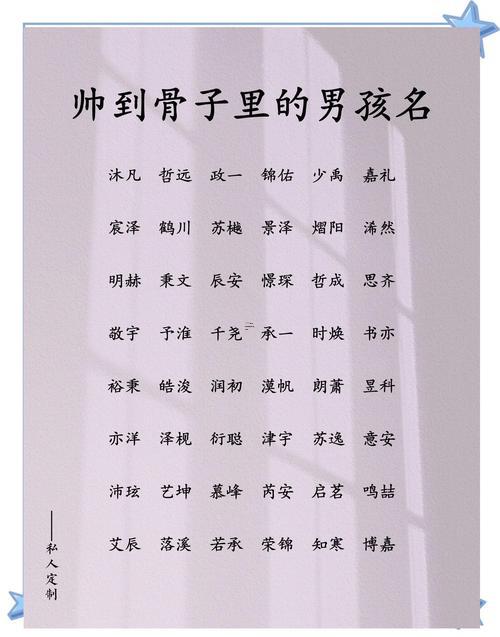 帅到骨子里的男孩名
沐凡 哲远 政一 锦佑 少禹 嘉礼
宸泽 鹤川 苏樾 景泽 熠阳 浠然
明赫 秉文 辰安 憬琛 哲成 思齐
敬宇 予淮 千尧 承一 时焕 书亦
裕秉 皓浚 润初 漠帆 朗萧 昱科
亦洋 泽枧 衍聪 津宇 苏逸 意安
沛玹 艺坤 慕峰 芮安 启茗 鸣喆
艾辰 落溪 若承 荣锦 知寒 博嘉
——私人定制